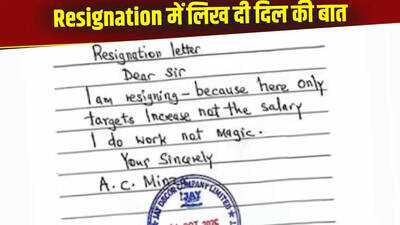 Resignation में लिख दी दिल की बात
Resignation letter
Dear Sir
I am resigning - because here only
targets Increase not the salary
I do work not Magic.
Your Sincerely
A. C. Minz
JAY DECOR COMPANY LIMITED
JAY
OCT 2025